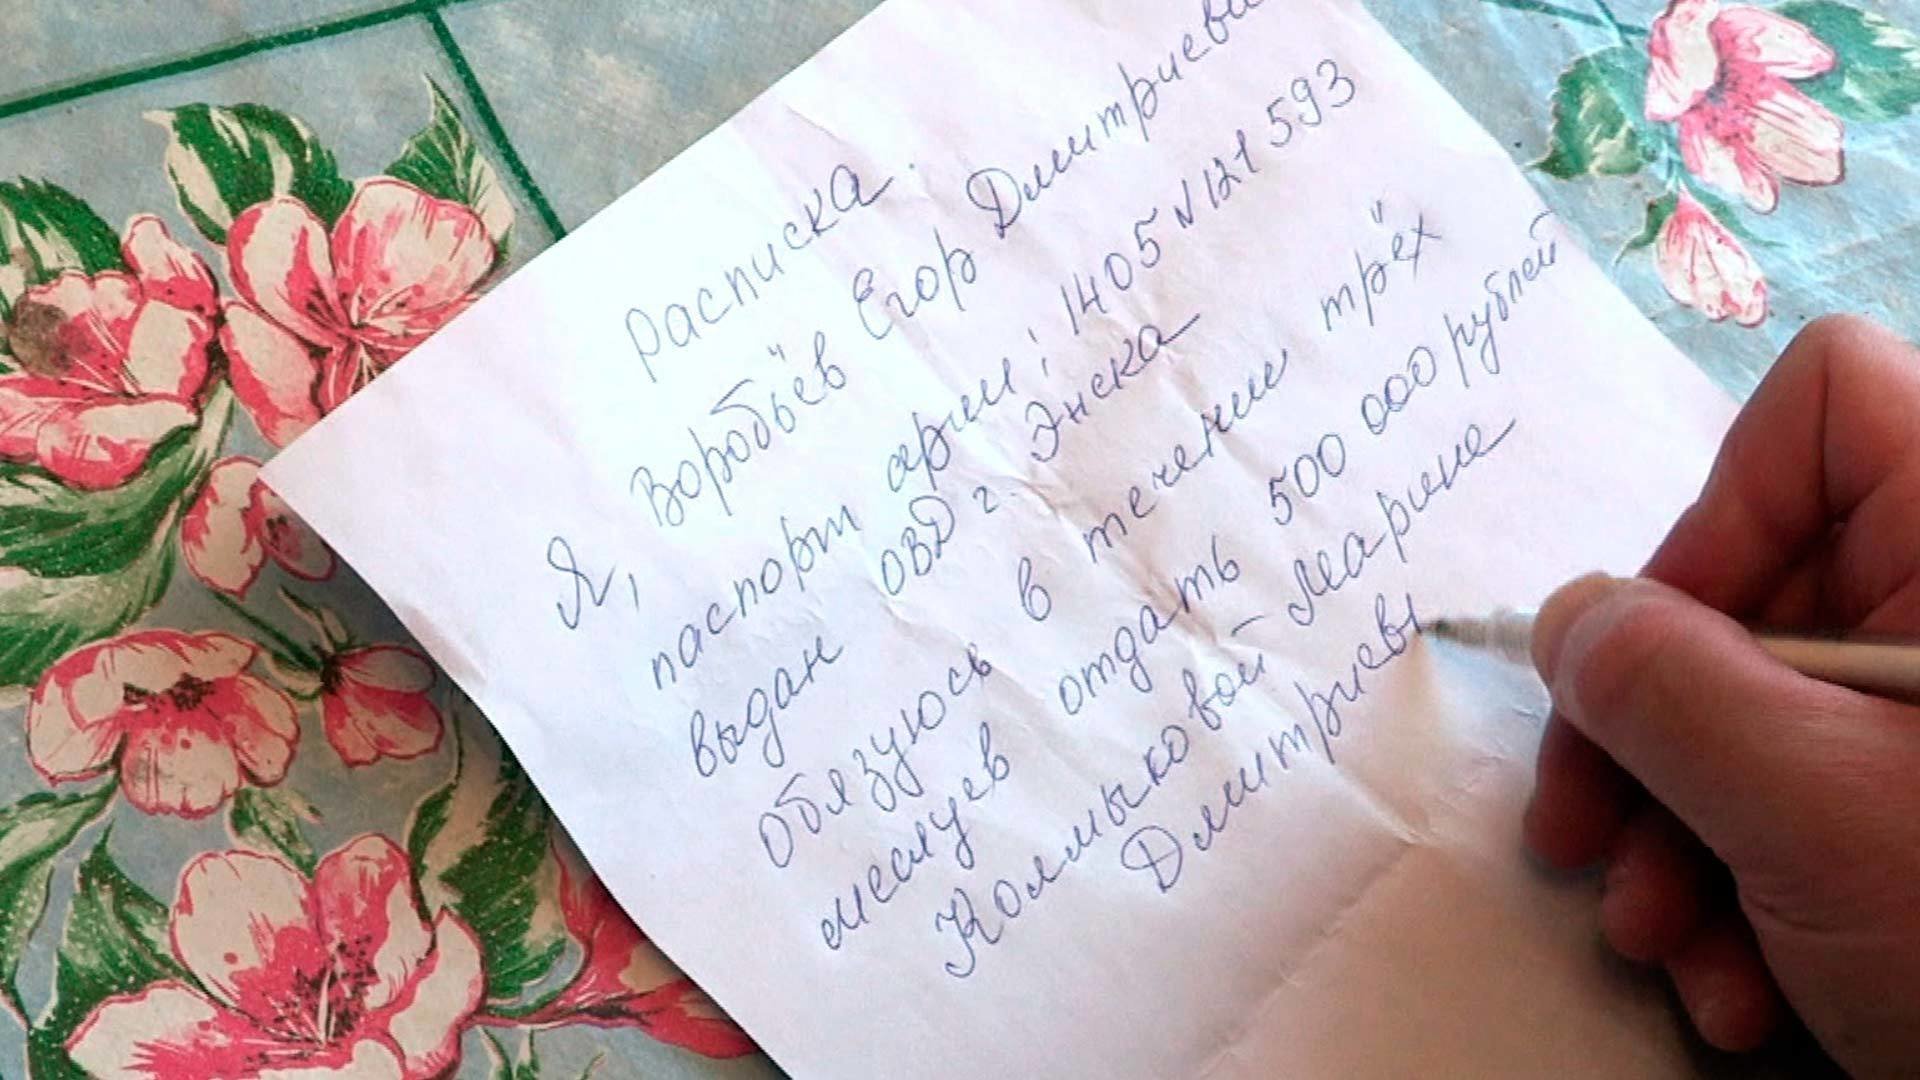 Расписка.
Я, Воробьёв Егор Дмитриеви
паспорт серии: 1405 N 121 593
выдан ОВД г. Энска
обязуюсь в течении трёх
месяцев отдать 500 000 рублей
Колмыковой Марине
Дмитриевн